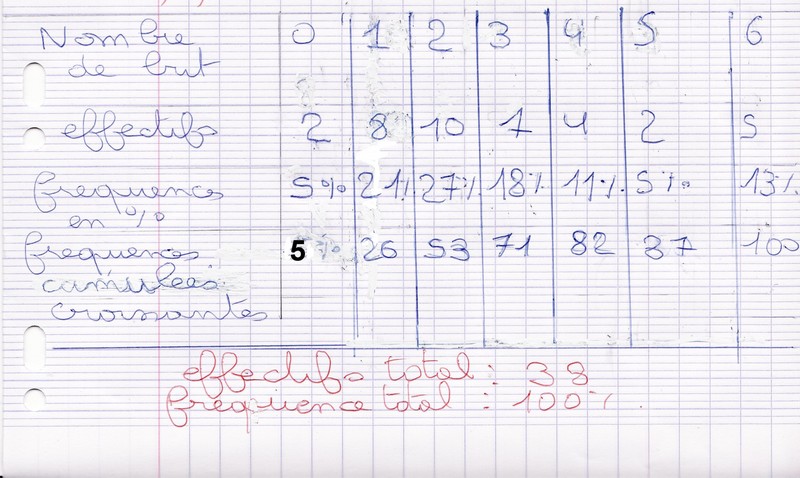 Nombre 0 1 2 3 4 5 6
de but
effectifs 2 8 10 7 4 2 5
frequences 5% 21% 27% 18% 11% 5% 13%
en %
frequences 5% 26 53 71 82 87 100
cumulees
croissantes
effectifs total : 38
frequence total : 100%